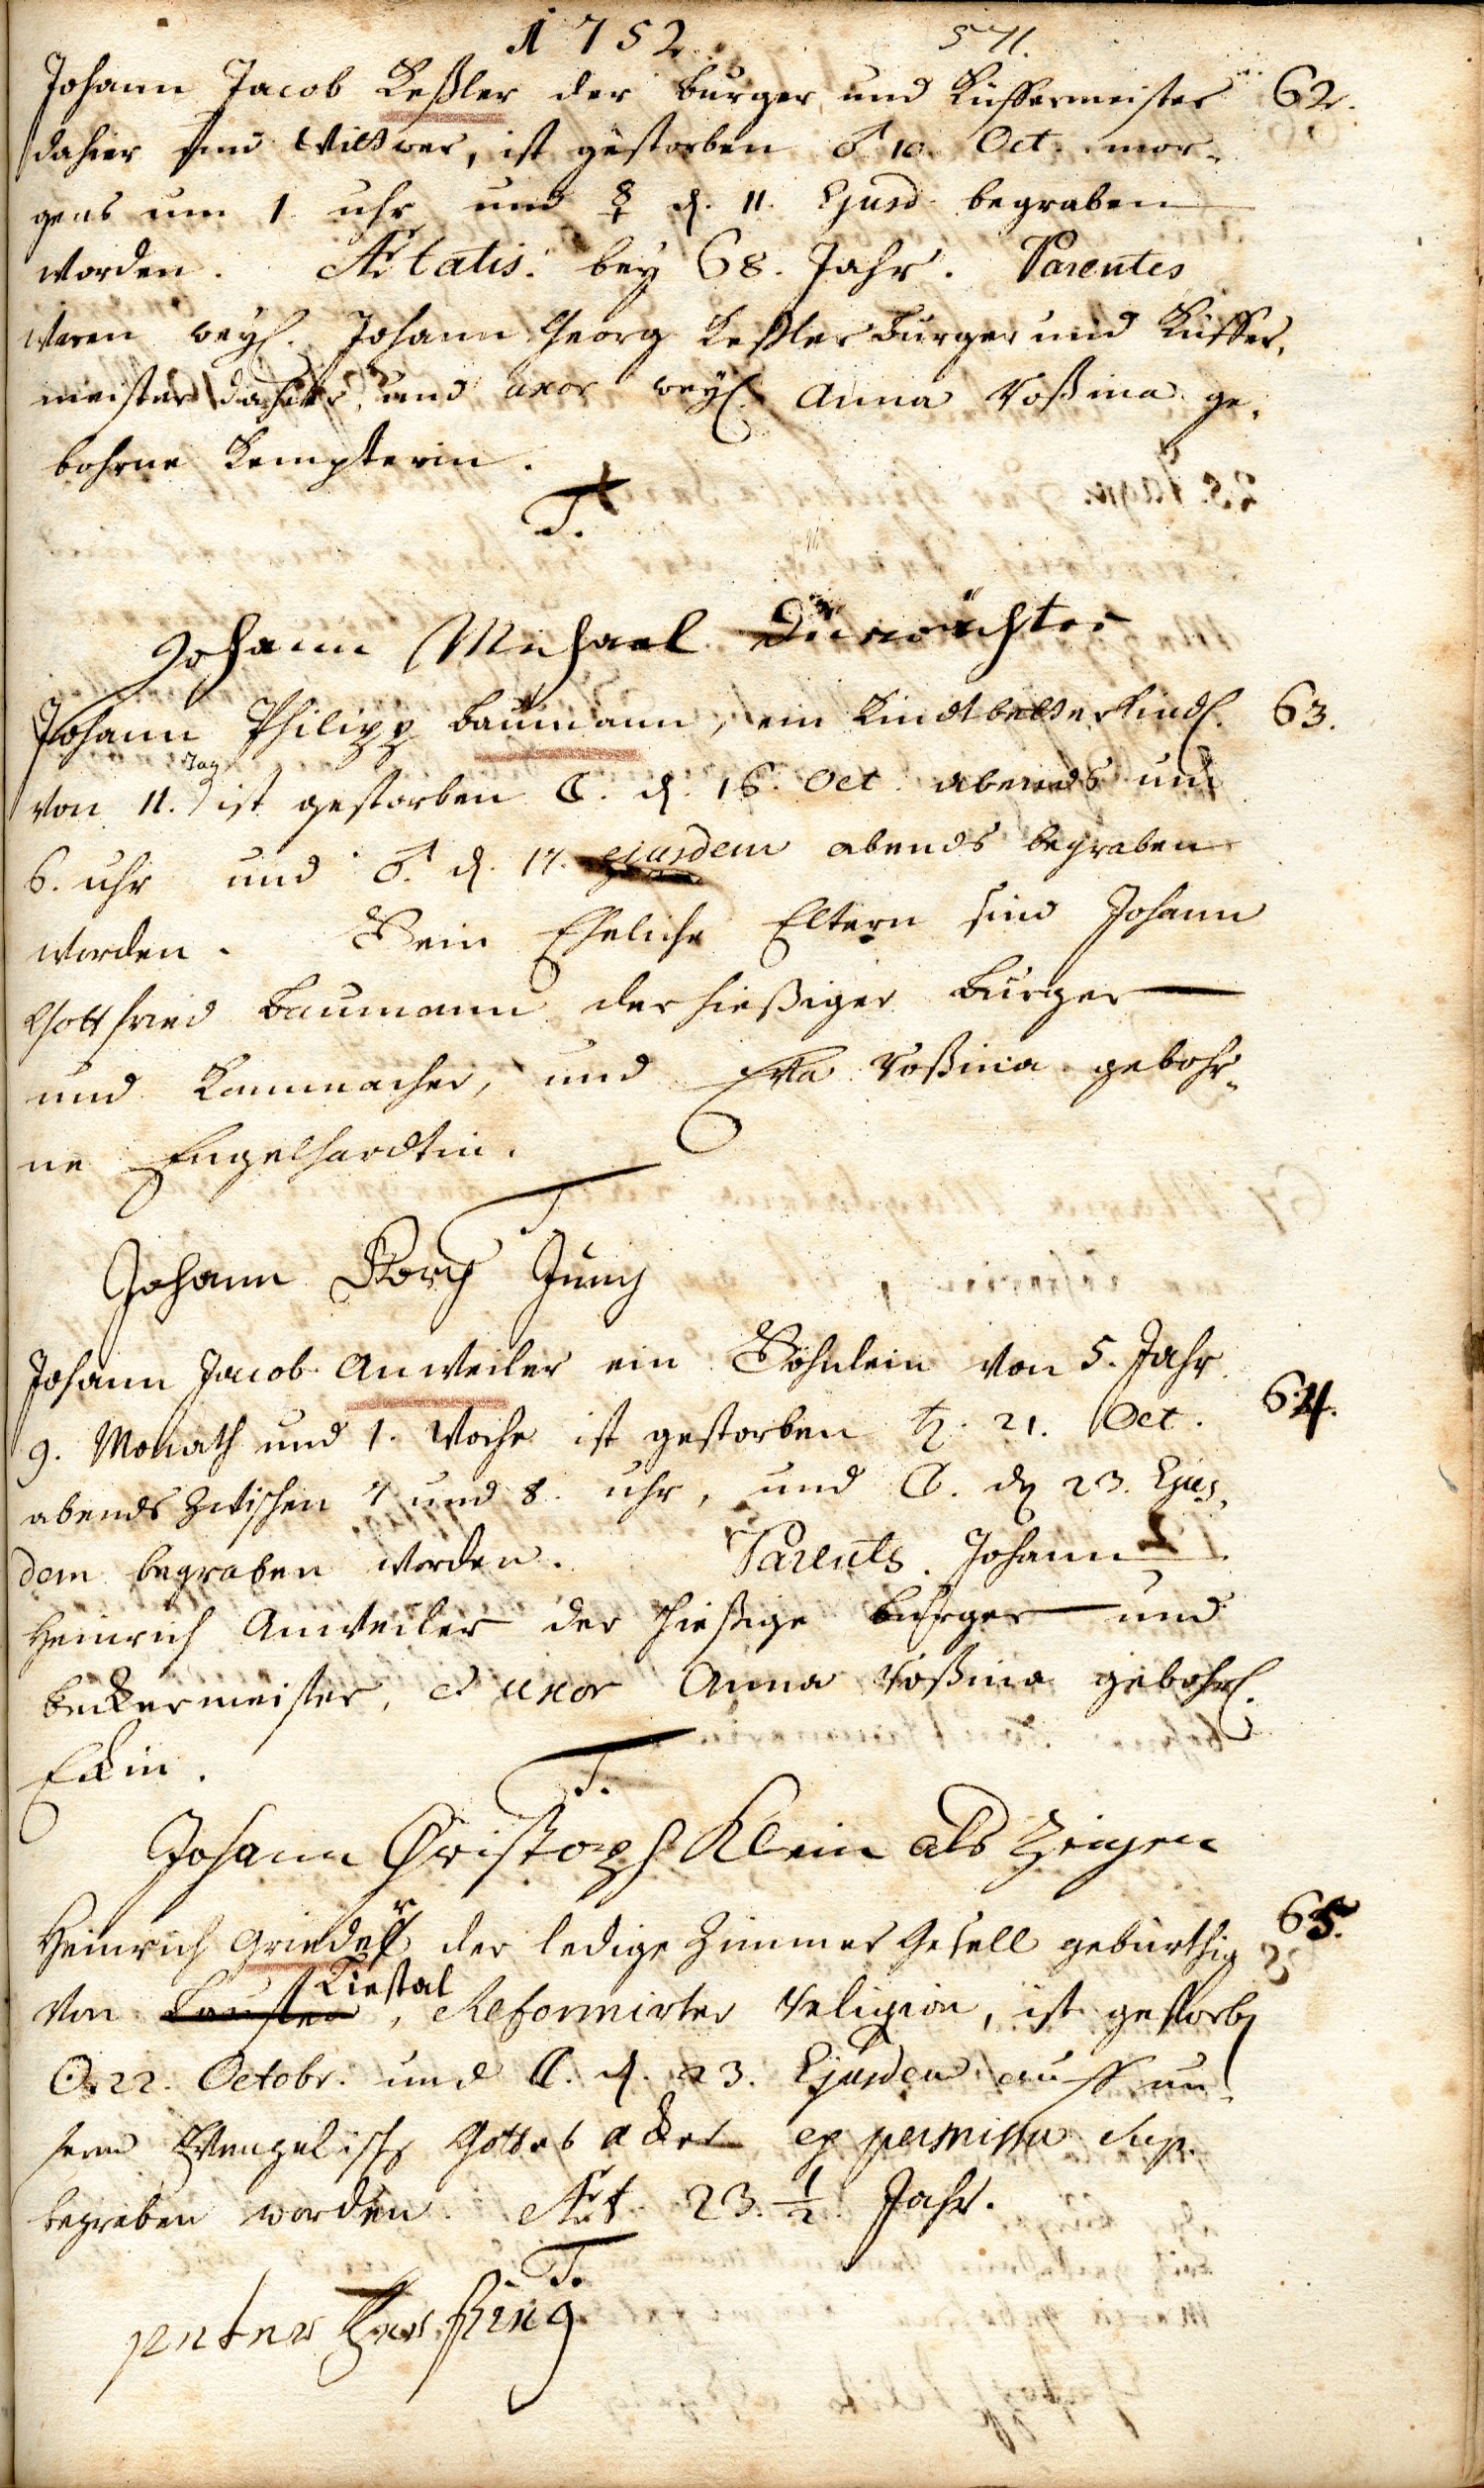 1752
571.
Johann Jacob Keßler der burger und Küffermeister 62.
dahier und Wittwer, ist gestorben ♂ 10. Oct. mor-
gens um 1 uhr und ☿ d. 11. Ejusd. begraben
worden. Ætatis. bey 68. Jahr. Parentes
waren weyl. Johann Georg Keßler burger und Küffer-
meister dahier, und uxor weyl. Anna Rosina ge-
bohrne Kempterin.
T.
Johann Michael Dürwächter
Johann Philipp Baumann, ein Kindtbetterkindl. 63.
Von 11. Tag ist gestorben ☾. d. 16. Oct. abends um
6. uhr und ♂. d. 17. ejusdem abends begraben
worden. Sein Eheliche Eltern sind Johann
Gottfried Baumann der hießiger Burger
und Kammacher, und Eva Rosina gebohr-
ne Engelhardtin.
T.
Johann Görg Jung
Johann Jacob Anweiler ein Söhnlein von 5. Jahr
9. Monath und 1. Woche ist gestorben ♄. 21. Oct. 64.
abends zwischen 7 und 8. uhr, und ☾. d. 23. Ejus-
dem begraben worden. Parents. Johann
Heinrich Anweiler der hießige burger und
Beckermeister, et uxor Anna Rosina gebohrl.
Eckin.
T.
Johann Christoph Klein als Zeugen
Heinrich Grieder, der ledige Zimmer Gesell gebürthig 65.
von Liestal, Reformirter Religion, ist gestorb.
☉. 22. Octobr. und ☾. d. 23. Ejusdem auff un-
sern Evangelisch Gottes acker ex permissu Sup.
begraben worden. Æt. 23. 1/2 Jahr.
T.